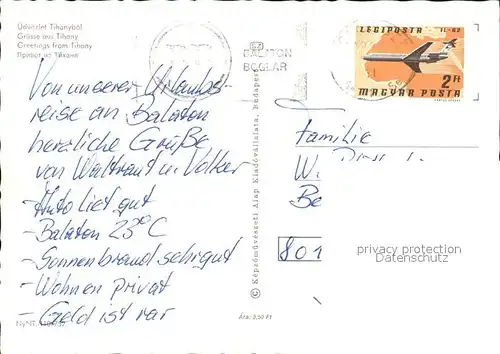 Üdvözlet Tihanyból
Grüsse aus Tihany
Greetings from Tihany
Привет из Тихани
Von unserer Urlaubs-
reise an Balaton
herzliche Grüße
von Waltraut u. Volker
- Auto lief gut
- Balaton 23°C
- Sonnenbrand sehr gut
- Wohnen privat
- Geld ist rar
Ára: 3,50 Ft
© Képzőművészeti Alap Kiadóvállalata, Budapest
BALATON
BOGLÁR
LÉGIPOSTA IL-62
2 Ft
MAGYAR POSTA
Familie
W.
Be
801
privacy protection
Datenschutz